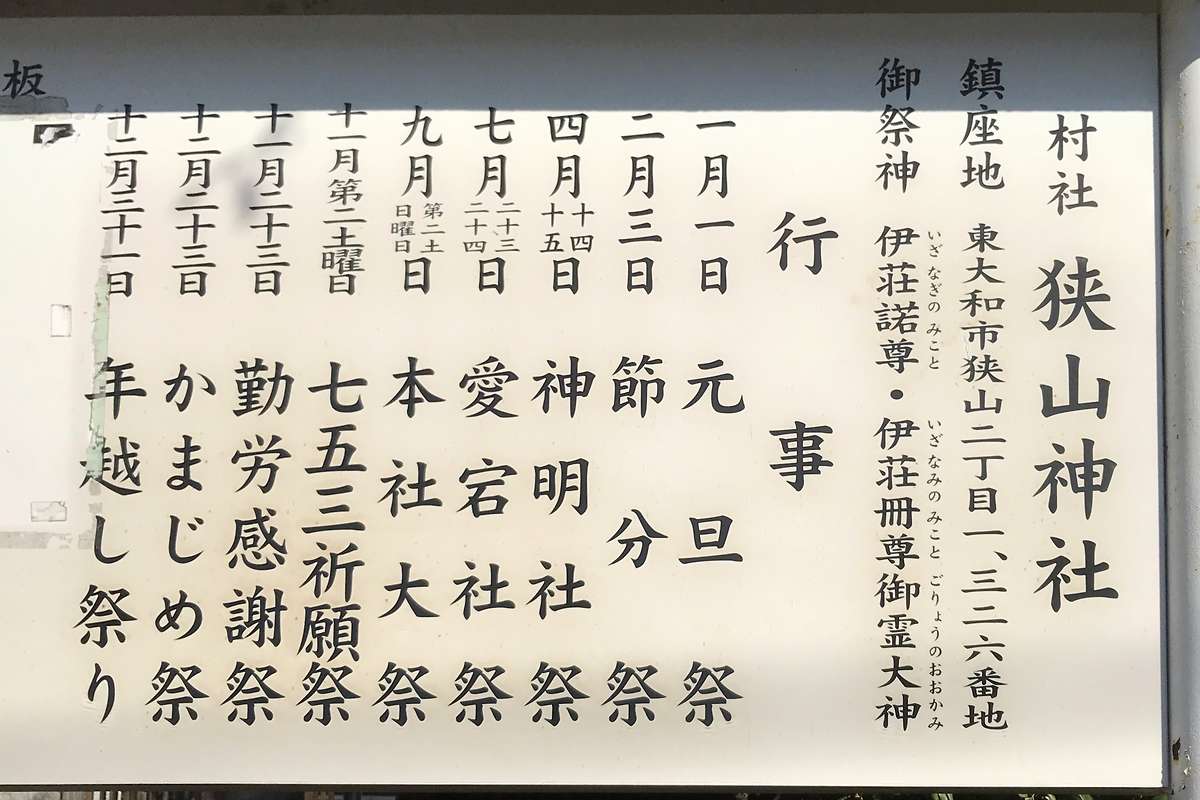 村社 狭山神社
鎮座地 東大和市狭山二丁目一、三二六番地
御祭神 伊荘諾尊・伊荘冊尊御霊大神
いざなぎのみこと いざなみのみこと ごりょうのおおかみ
行事
一月一日 元旦祭
二月三日 節分祭
四月十四十五日 神明社祭
七月二十三二十四日 愛宕社祭
九月第二土日曜日日 本社大祭
十一月第二土曜日 七五三祈願祭
十一月二十三日 勤労感謝祭
十二月二十三日 かまじめ祭
十二月三十一日 年越し祭り
板